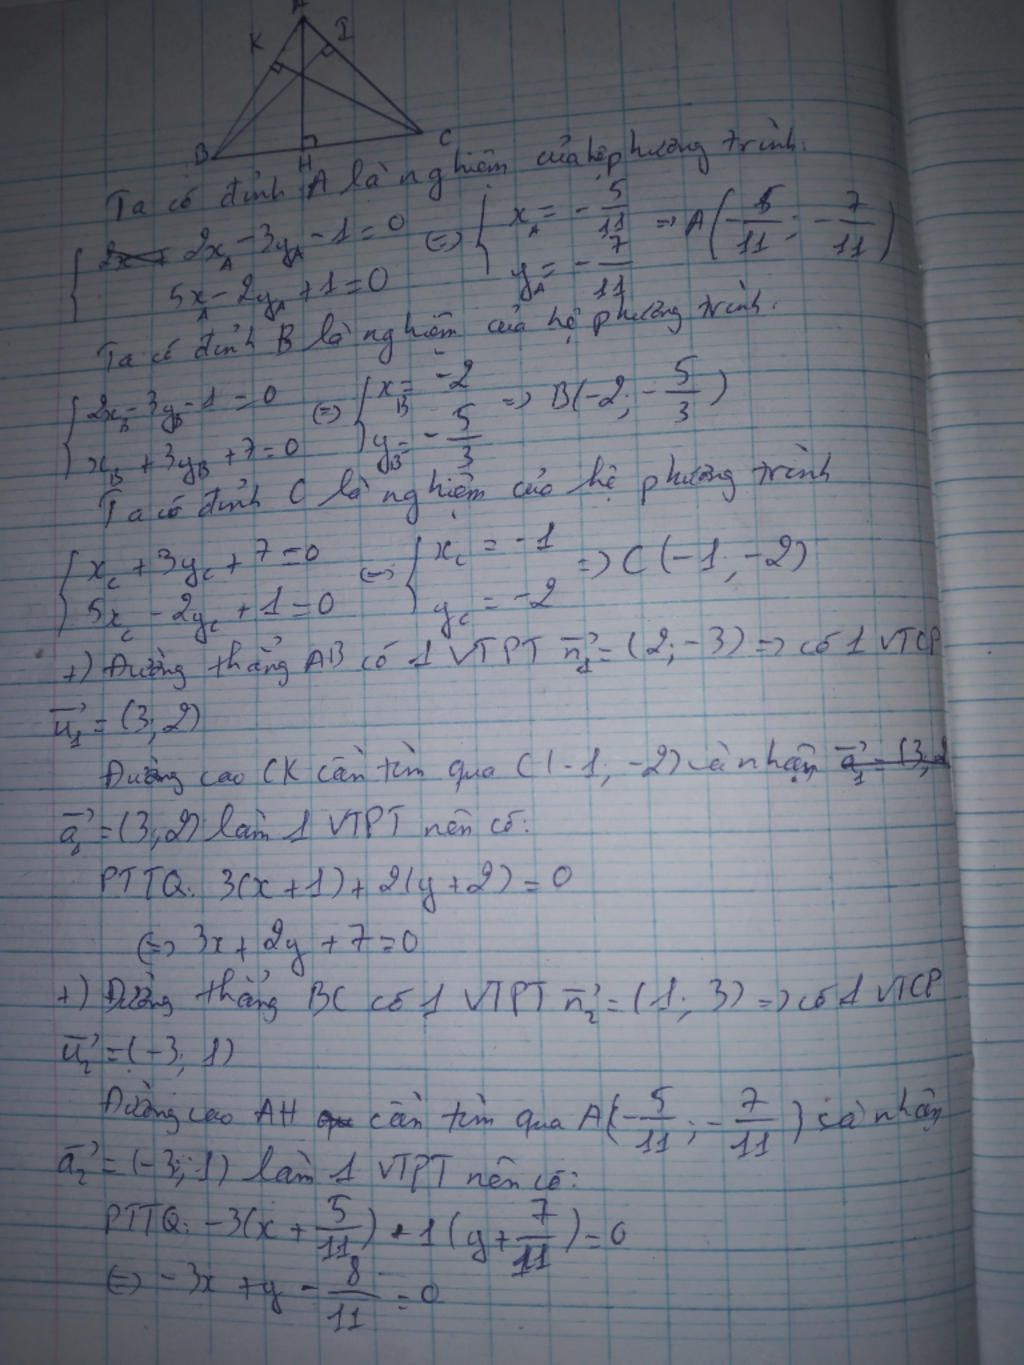 A
K I
B H C
Ta có đỉnh A là nghiệm của hệ phương trình:
{ 2x_A - 3y_A - 1 = 0
5x_A - 2y_A + 1 = 0 (=) { x_A = -5/11
y_A = -7/11 => A(-5/11; -7/11)
Ta có đỉnh B là nghiệm của hệ phương trình:
{ 2x_B - 3y_B - 1 = 0
x_B + 3y_B + 7 = 0 (=) { x_B = -2
y_B = -5/3 => B(-2; -5/3)
Ta có đỉnh C là nghiệm của hệ phương trình
{ x_C + 3y_C + 7 = 0
5x_C - 2y_C + 1 = 0 (=) { x_C = -1
y_C = -2 => C(-1; -2)
+) Đường thẳng AB có 1 VTPT n₁ = (2; -3) => có 1 VTCP
u₁ = (3; 2)
Đường cao CK cần tìm qua C(-1; -2) và nhận
a₁ = (3; 2) làm 1 VTPT nên có:
PTTQ: 3(x + 1) + 2(y + 2) = 0
(=) 3x + 2y + 7 = 0
+) Đường thẳng BC có 1 VTPT n₂ = (1; 3) => có 1 VTCP
u₂ = (-3; 1)
Đường cao AH cần tìm qua A(-5/11; -7/11) và nhận
a₂ = (-3; 1) làm 1 VTPT nên có:
PTTQ: -3(x + 5/11) + 1(y + 7/11) = 0
(=) -3x + y - 8/11 = 0